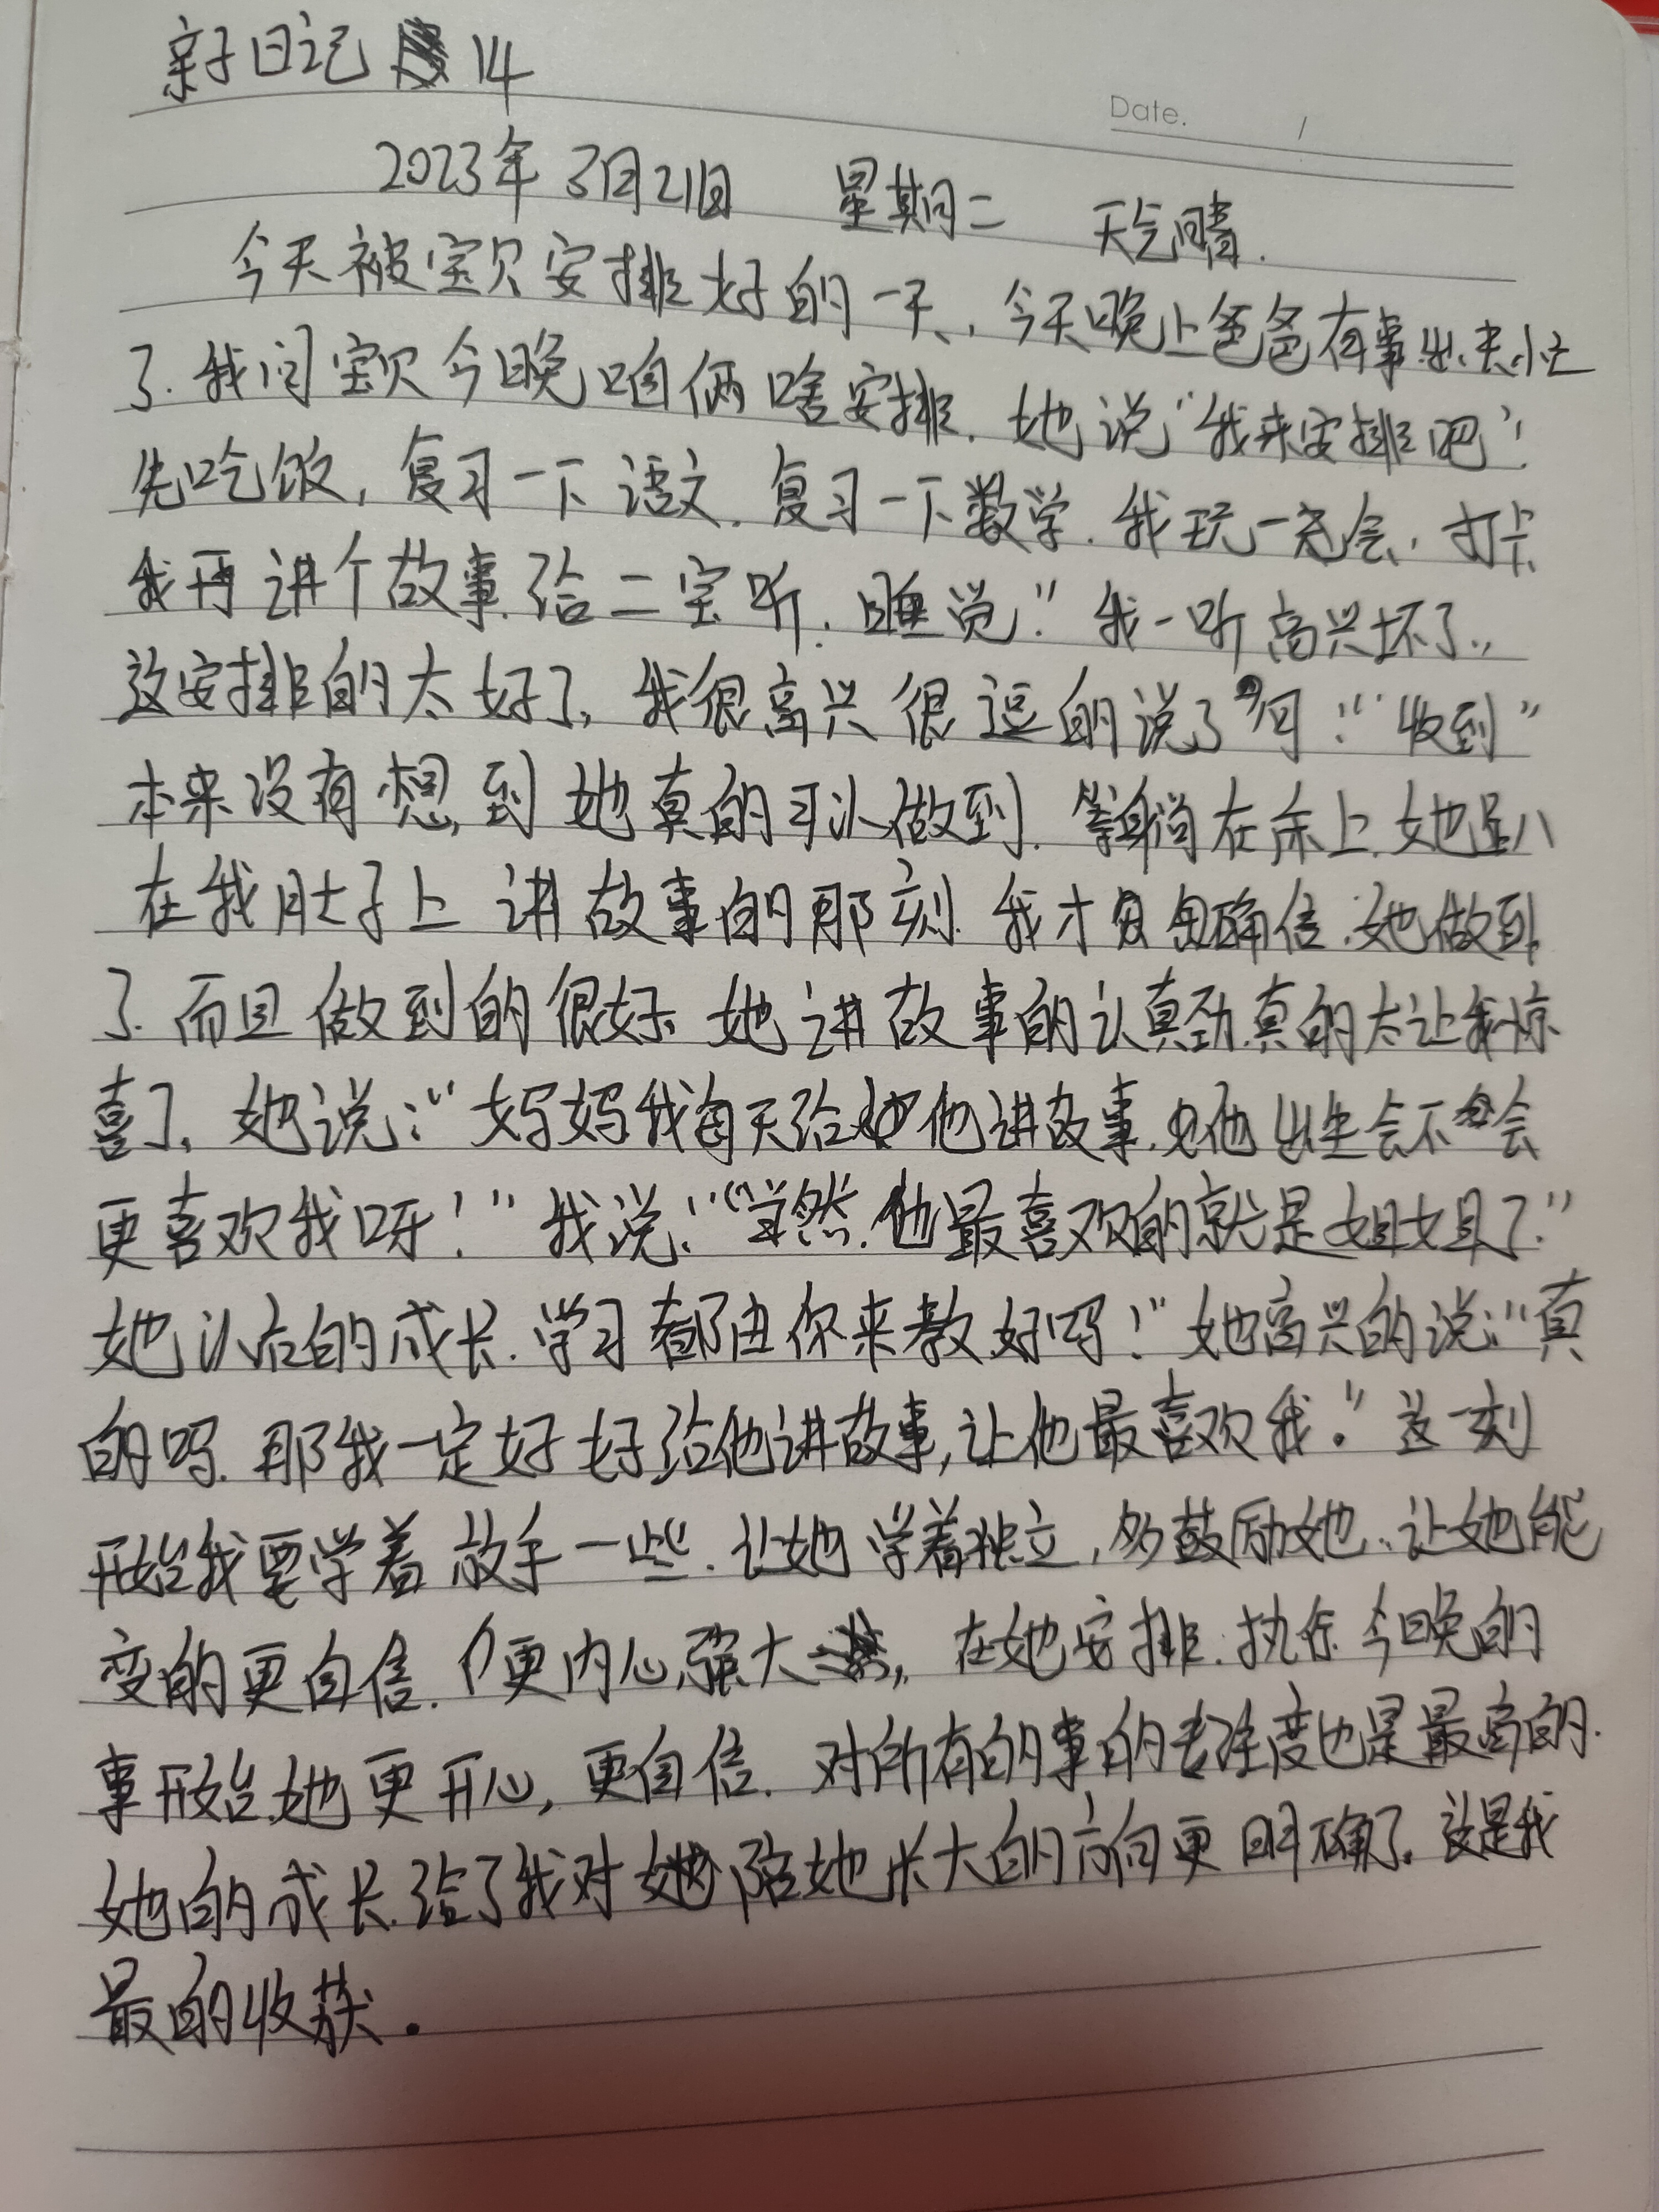 亲子日记 14
Date. /
2023年3月21日 星期二 天气晴.
今天被宝贝安排好的一天、今天晚上爸爸有事出去忙
了.我问宝贝今晚咱俩啥安排.她说“我来安排吧”!
先吃饭,复习一下语文.复习一下数学.我玩一会,打卡
我再讲个故事给二宝听.睡觉!”我一听高兴坏了.,
这安排的太好了,我很高兴很逗的说了句:“收到”
本来没有想到她真的可以做到.等躺在床上.她趴
在我肚子上讲故事的那刻.我才确信.她做到
了.而且做到的很好.她讲故事的认真劲真的太让我惊
喜了,她说:“妈妈我每天给他讲故事.他出生会不会
更喜欢我呀!”我说:“当然.他最喜欢的就是姐姐了.”
她以后的成长.学习都由你来教好吗!”她高兴的说:“真
的吗.那我一定好好给他讲故事,让他最喜欢我.”这一刻
开始我要学着放手一些.让她学着独立,多鼓励她.让她能
变的更自信.更内心强大,在她安排.执行今晚的
事开始她更开心,更自信.对所有的事的专注度也是最高的.
她的成长.给了我对陪她长大的方向更明确了.这是我
最的收获.